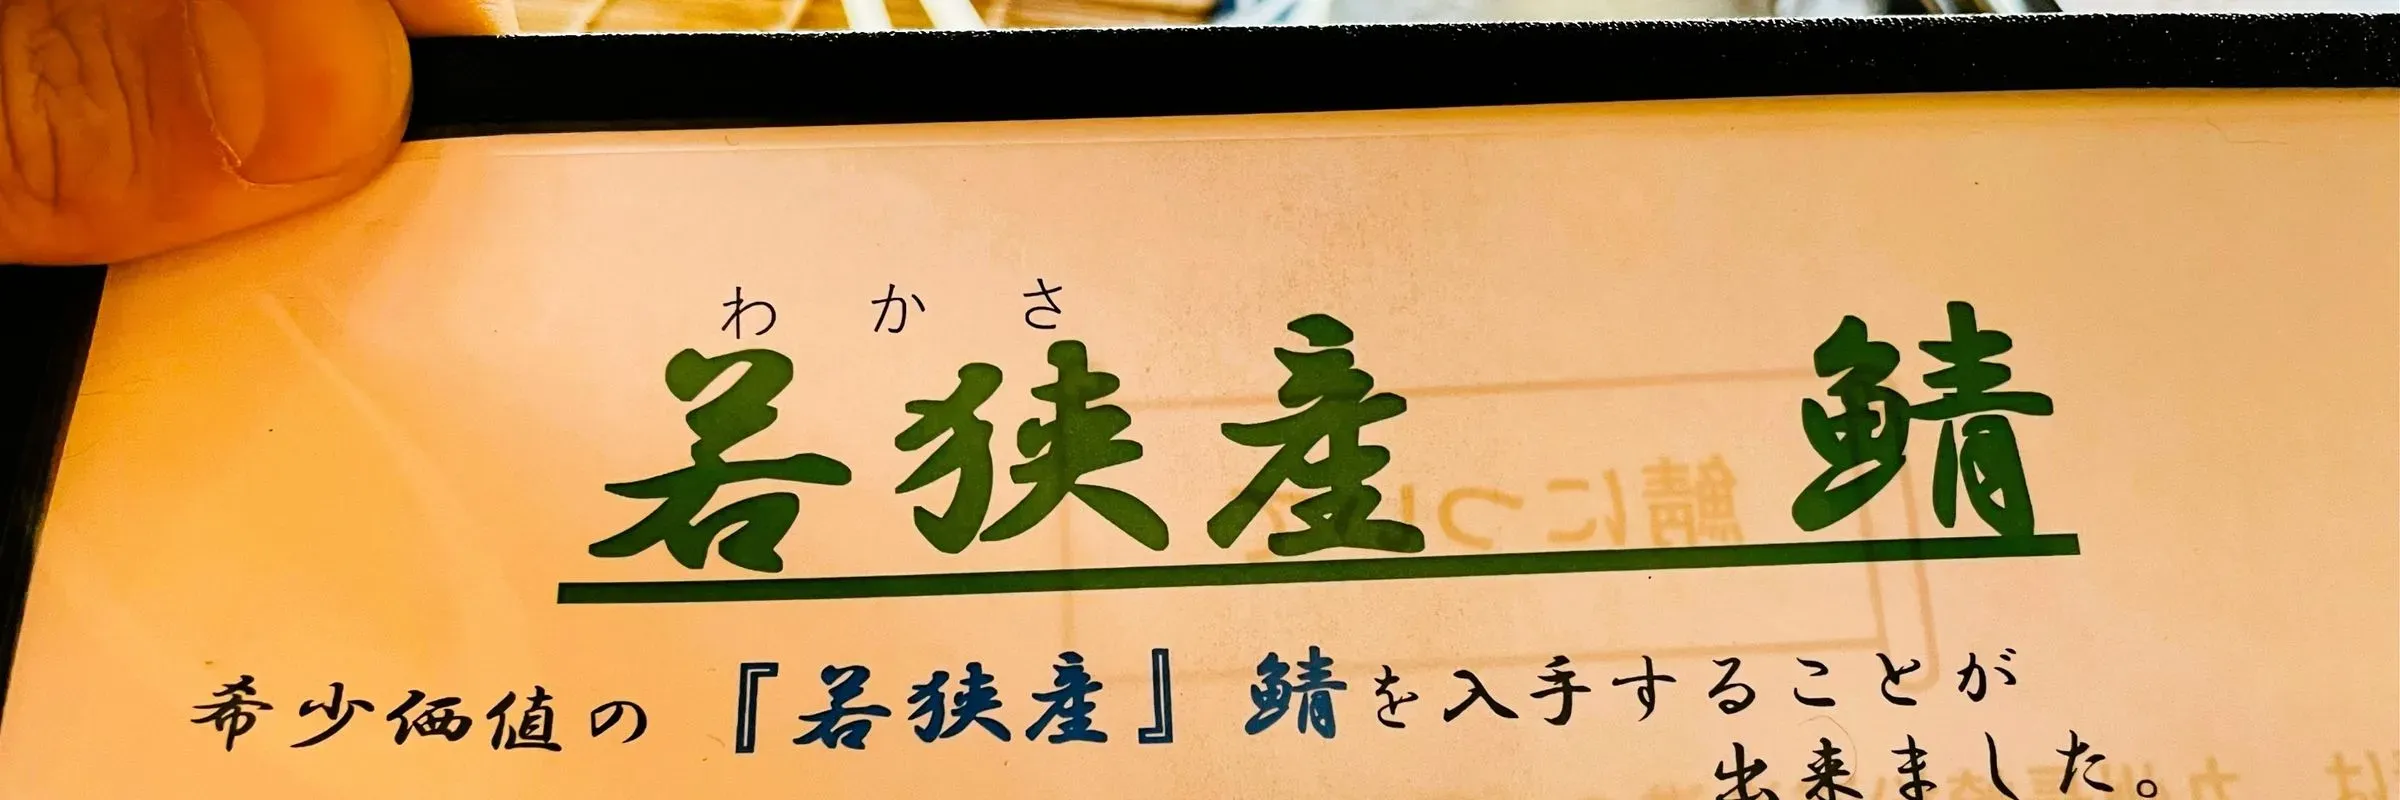 わかさ
若狭産 鯖
希少価値の『若狭産』鯖を入手することが
出来ました。
鯖について